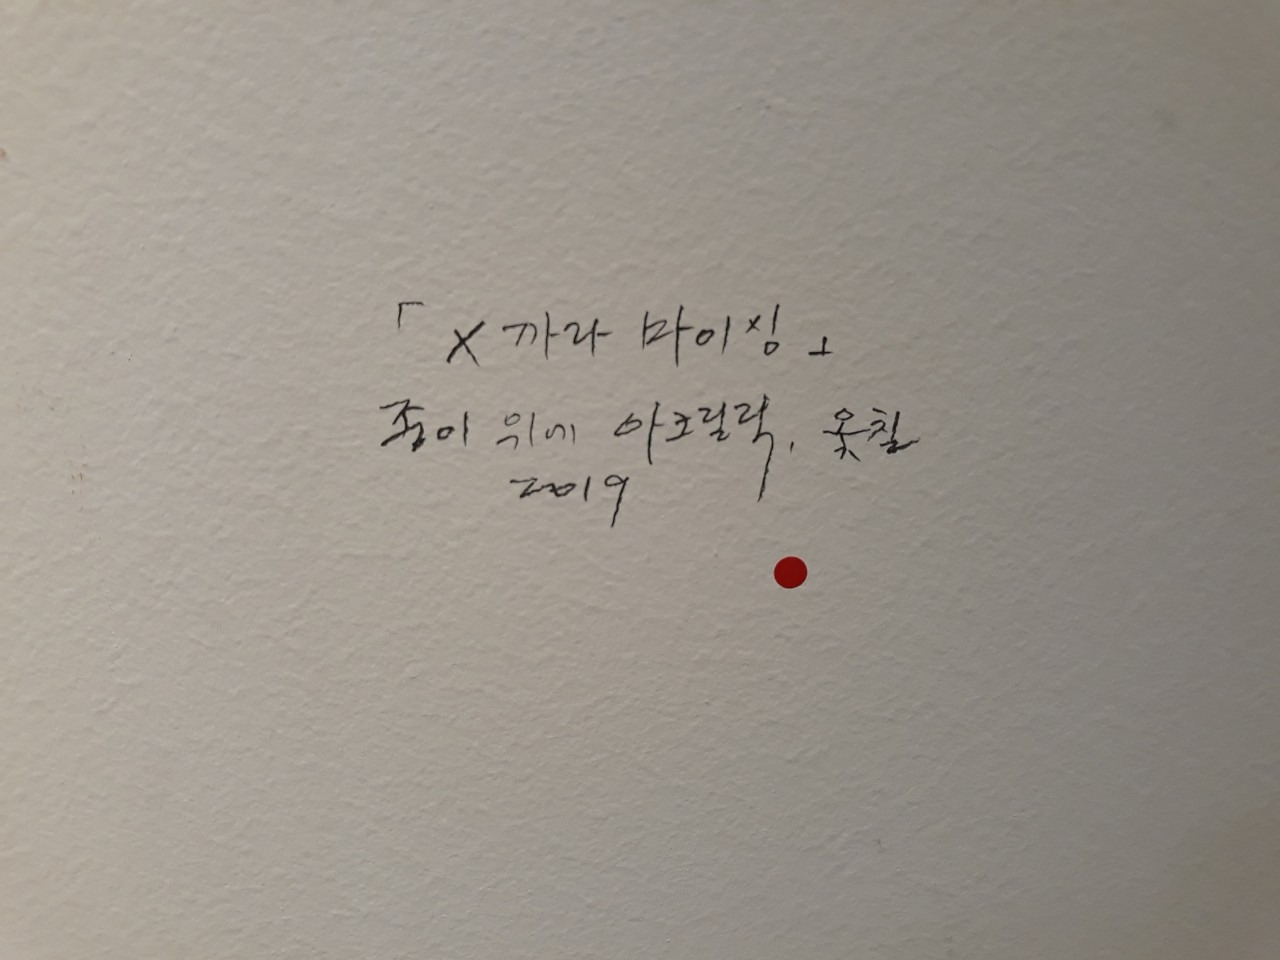 「X까라 마이싱」
종이 위에 아크릴릭, 옻칠
2019